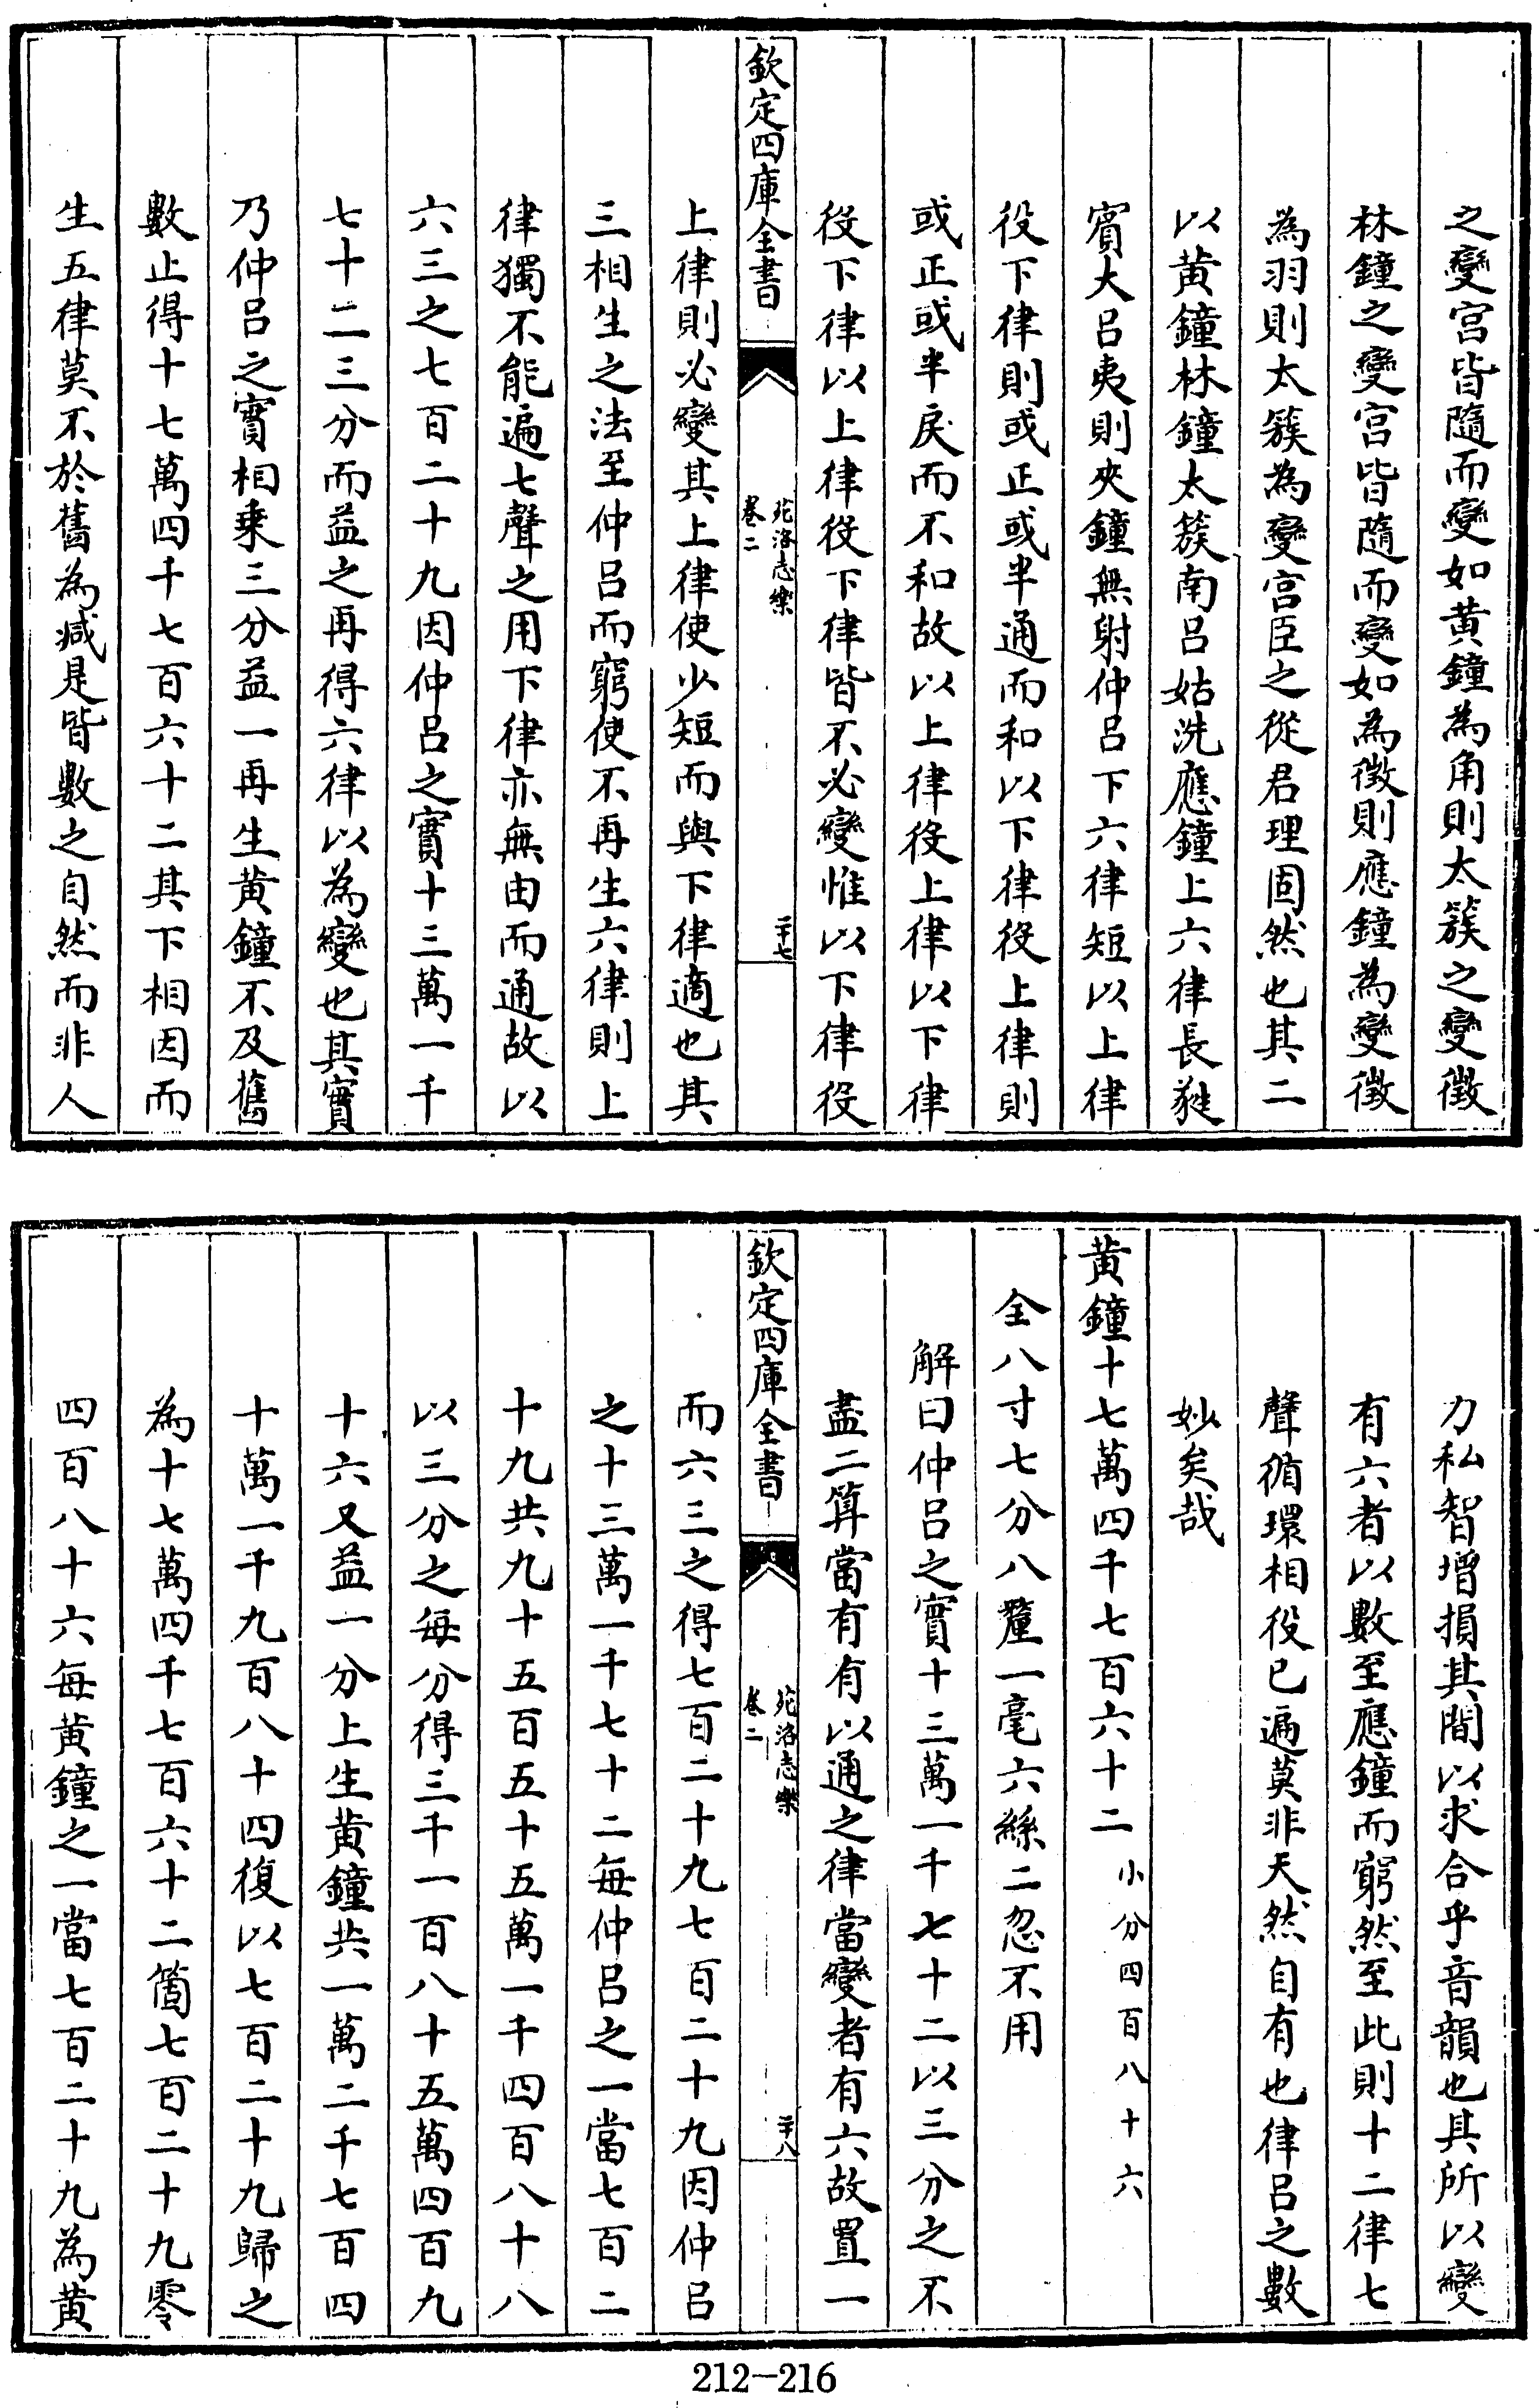 之變宮皆隨而變如黃鐘為角則太簇之變徵
林鐘之變宮皆隨而變如為徵則應鐘為變徵
為羽則太簇為變宮臣之從君理固然也其二
以黃鐘林鐘太簇南呂姑洗應鐘上六律長蕤
賓大呂夷則夾鐘無射仲呂下六律短以上律
役下律則或正或半通而和以下律役上律則
或正或半戾而不和故以上律役上律以下律
役下律以上律役下律皆不必變惟以下律役
欽定四庫全書
苑洛志樂
卷二
二十七
上律則必變其上律使少短而與下律適也其
三相生之法至仲呂而窮使不再生六律則上
律獨不能遍七聲之用下律亦無由而通故以
六三之七百二十九因仲呂之實十三萬一千
七十二三分而益之再得六律以為變也其實
乃仲呂之實相乗三分益一再生黃鐘不及舊
數止得十七萬四千七百六十二其下相因而
生五律莫不於舊為減是皆數之自然而非人
力私智增損其間以求合乎音韻也其所以變
有六者以數至應鐘而窮然至此則十二律七
聲循環相役已遍莫非天然自有也律呂之數
妙矣哉
黃鐘十七萬四千七百六十二小分四百八十六
全八寸七分八釐一毫六絲二忽不用
解曰仲呂之實十三萬一千七十二以三分之不
盡二算當有有以通之律當變者有六故置一
欽定四庫全書
苑洛志樂
卷二
二十八
而六三之得七百二十九七百二十九因仲呂
之十三萬一千七十二每仲呂之一當七百二
十九共九十五百五十五萬一千四百八十八
以三分之每分得三千一百八十五萬四百九
十六又益一分上生黃鐘共一萬二千七百四
十萬一千九百八十四復以七百二十九歸之
為十七萬四千七百六十二箇七百二十九零
四百八十六每黃鐘之一當七百二十九為黃
212-216